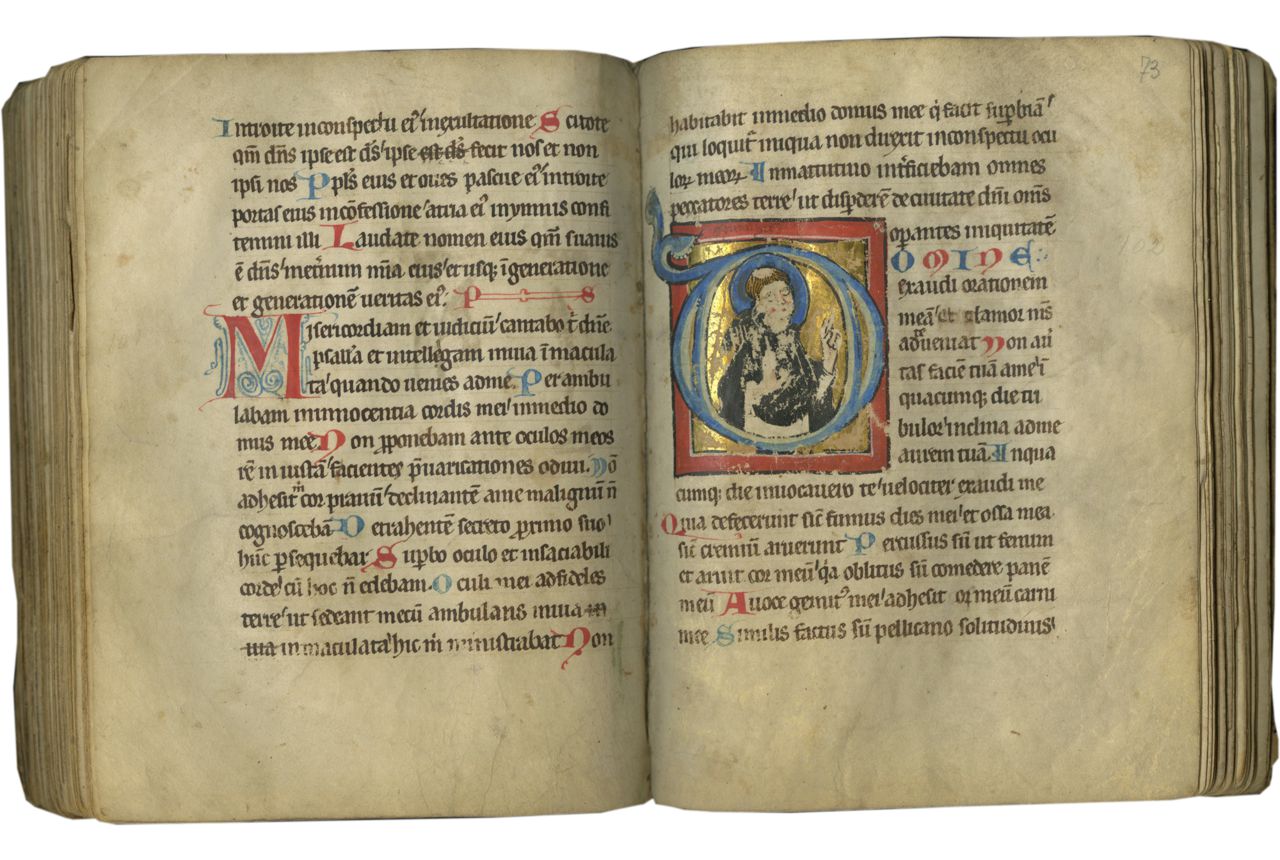 Introite inconspectu ei᾽ inexultatione Scitote
qm̄ dn̄s ipse est ds̄ ipse est ds̄ fecit nos et non
ipsi nos Ppls̄ eius et oues pascue ei᾽ introite
portas eius incōfessione atria ei᾽ inymnis confi
temini illi Laudate nomen eius qm̄ suauis
ē dn̄s metn̄um mīa eius et usq; īgeneratione
et generationē ueritas ei᾽. P S
Misericordiam et iudiciū cantabo t̄ dn̄e
psallā et intellegam inuia īmacula
ta quando uenies adme Perambu
labam ininnocentia cordis mei inmedio do
mus mee Non p̄ponebam ante oculos meos
rē in iustā facientes p̄uaricationes odiui Nō
adhesit m̄ cor prauū declinantē ame malignū n̄
cognoscebā Detrahentē secreto proximo suo
hūc p̄sequebar Supbo oculo et insaciabili
corde cū hoc n̄ edebam Oculi mei adfideles
terre ut sedeant mecū ambulans inuia in
uia inmaculata hic m̄ ministrabat Non
73
habitabit inmedio domus mee q̄ facit supbiā
qui loquit᾽ iniqua non direxit inconspectu ocu
loꝝ meoꝝ Inmatutino int̄ficiebam omnes
peccatores terre ut dispderē deciuitate dn̄i om̄s
opantes iniquitatē
DOMINE
exaudi orationem
meā et clamor m̄s
adteueniat Non au᾽
tas faciē tuā ame ī
quacumq; die tri
bulor inclina adme
aurem tuā Inqua
cumq; die inuocauero te uelociter exaudi me
Quia defecerunt sic̄ fumus dies mei et ossa mea
sic̄ cremiū aruerunt Percussus sū ut fenum
et aruit cor meū q̄a oblitus sū comedere panē
meū Auoce gemit᾽ mei adhesit os meū carni
mee Similis factus sū pellicano solitudinis